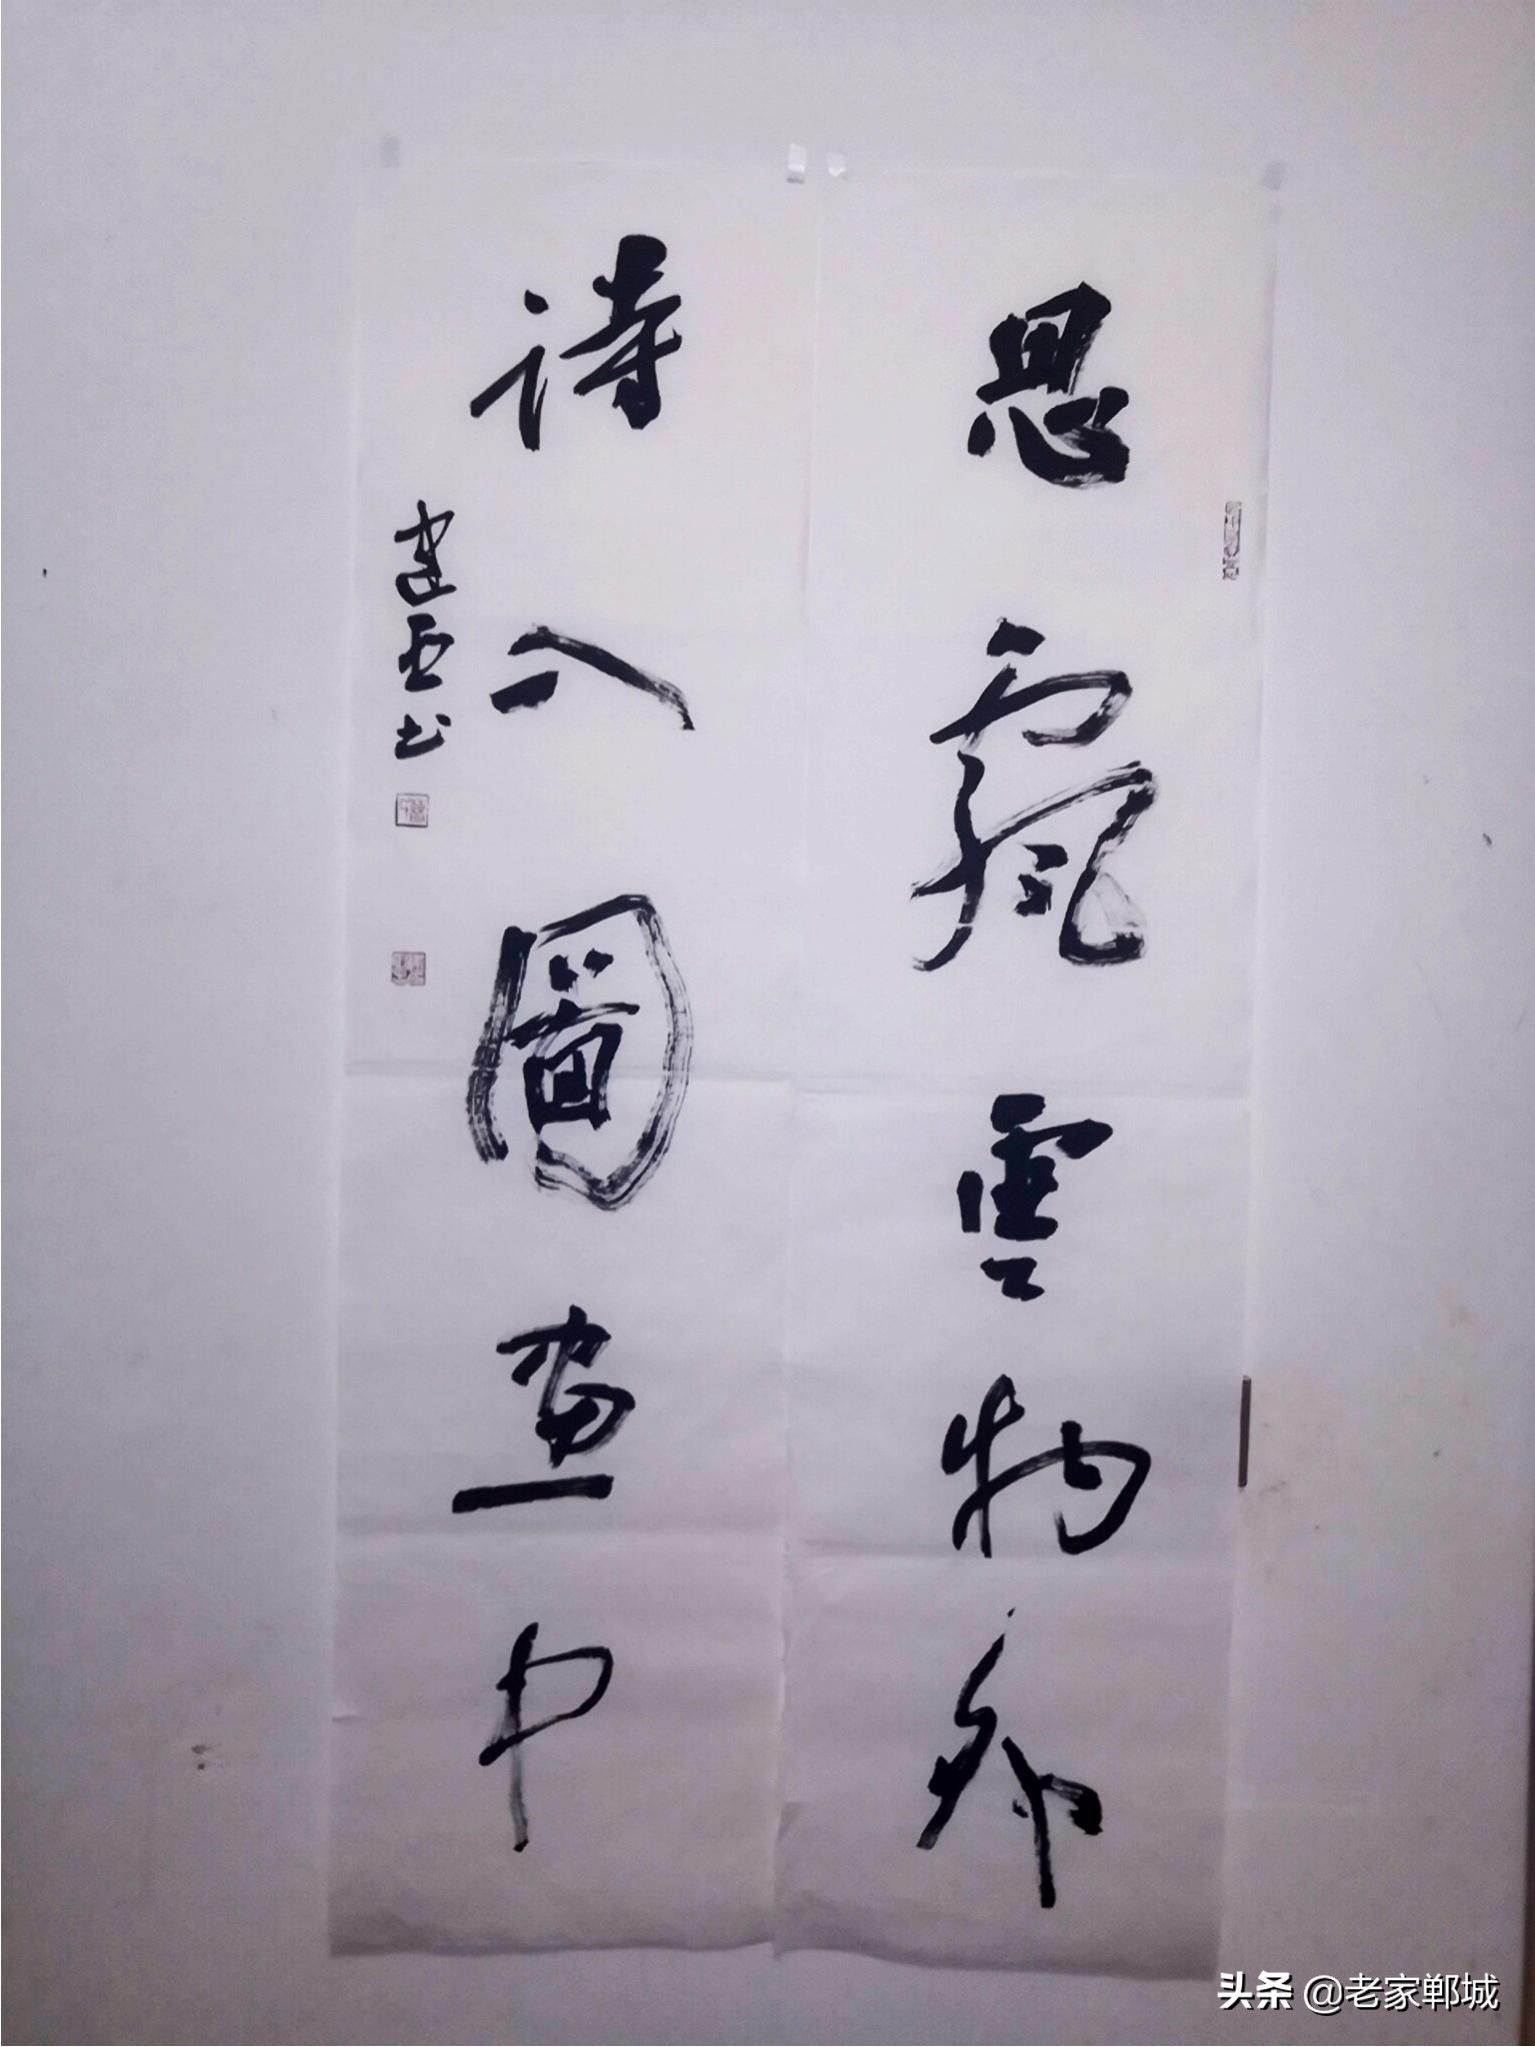 思飄雲物外
詩入圖畫中
建亚书
头条 @老家郸城